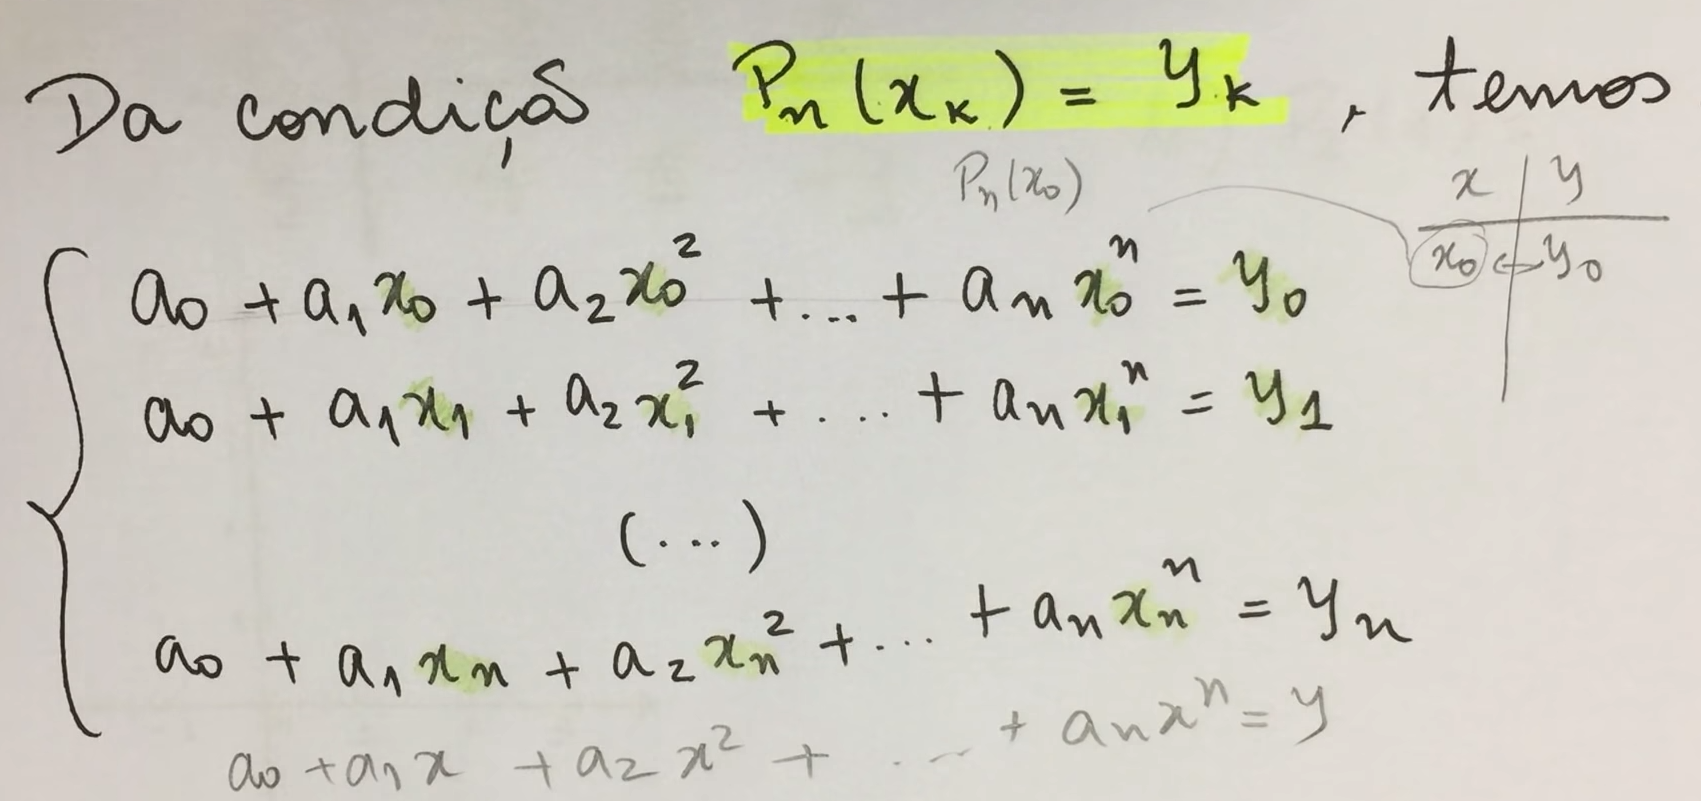 Da condição Pₙ(xₖ) = yₖ, temos
Pₙ(x₀)
x | y
x₀ ↔ y₀
a₀ + a₁x₀ + a₂x₀² + ... + aₙx₀ⁿ = y₀
a₀ + a₁x₁ + a₂x₁² + .... + aₙx₁ⁿ = y₁
(...)
a₀ + a₁xₙ + a₂xₙ² + ... + aₙxₙⁿ = yₙ
a₀ + a₁x + a₂x² + ... + aₙxⁿ = y